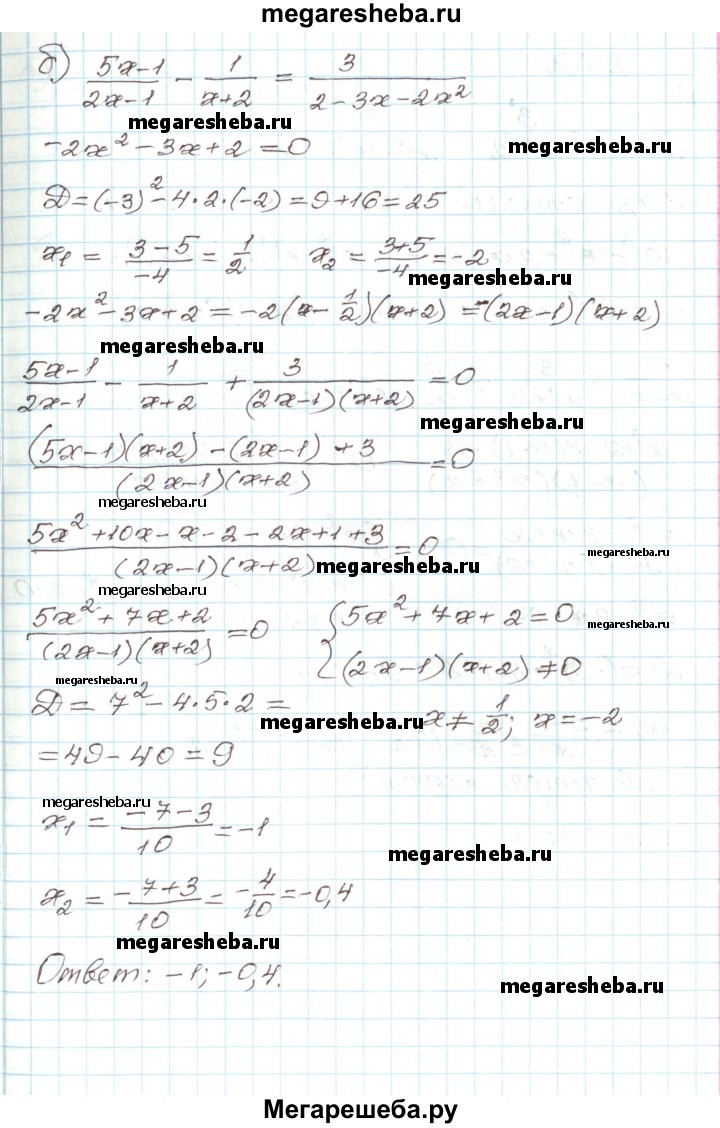 megaresheba.ru
б) (5x-1)/(2x-1) - 1/(x+2) = 3/(2-3x-2x²)
megaresheba.ru
-2x² - 3x + 2 = 0 megaresheba.ru
Д = (-3)² - 4·2·(-2) = 9+16 = 25
x₁ = (3-5)/(-4) = 1/2 x₂ = (3+5)/(-4) = -2
megaresheba.ru
-2x² - 3x + 2 = -2(x - 1/2)(x+2) = -(2x-1)(x+2)
megaresheba.ru
(5x-1)/(2x-1) - 1/(x+2) + 3/((2x-1)(x+2)) = 0
megaresheba.ru
((5x-1)(x+2) - (2x-1) + 3)/((2x-1)(x+2)) = 0
megaresheba.ru
(5x² + 10x - x - 2 - 2x + 1 + 3)/((2x-1)(x+2)) = 0
megaresheba.ru megaresheba.ru
megaresheba.ru
(5x² + 7x + 2)/((2x-1)(x+2)) = 0 { 5x² + 7x + 2 = 0
megaresheba.ru
(2x-1)(x+2) ≠ 0
megaresheba.ru
Д = 7² - 4·5·2 =
megaresheba.ru
x ≠ 1/2; x = -2
= 49 - 40 = 9
megaresheba.ru
x₁ = (-7-3)/10 = -1
megaresheba.ru
x₂ = (-7+3)/10 = -4/10 = -0,4
megaresheba.ru
Ответ: -1; -0,4.
megaresheba.ru
Мегарешеба.ру